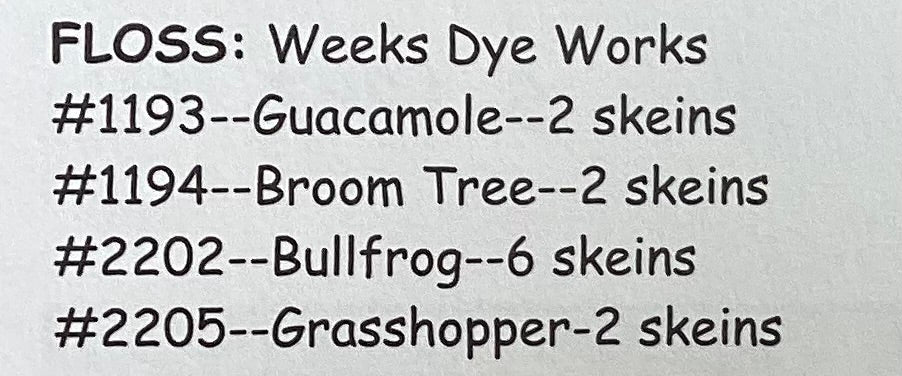 FLOSS: Weeks Dye Works
#1193--Guacamole--2 skeins
#1194--Broom Tree--2 skeins
#2202--Bullfrog--6 skeins
#2205--Grasshopper-2 skeins